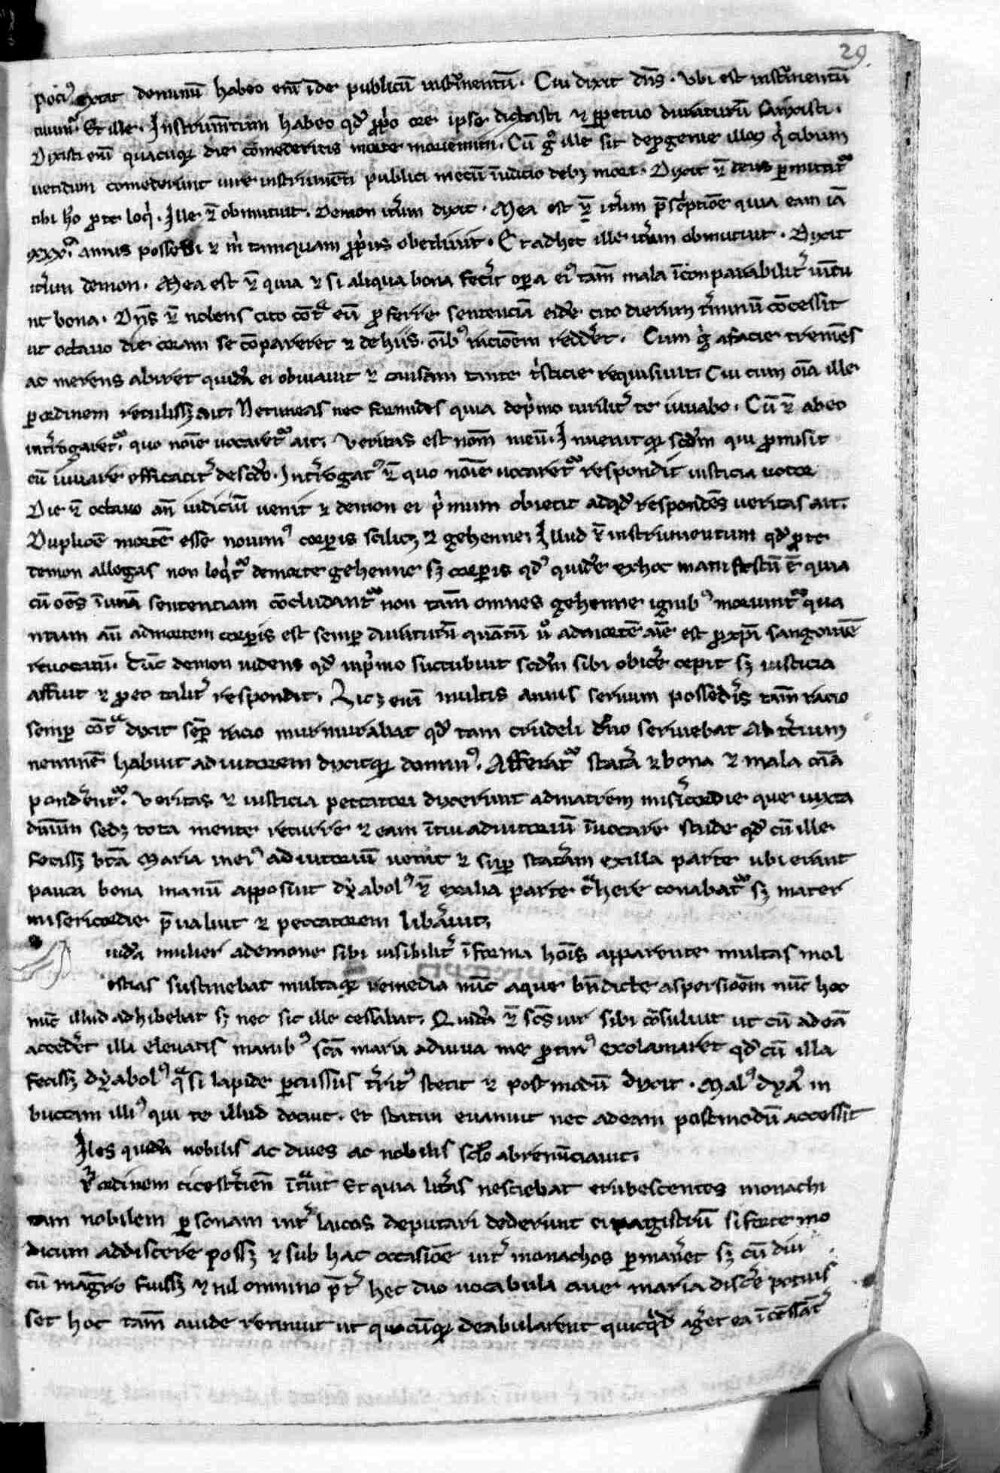 29.
poci9 extat demonū habeo enī īde publicū instrumentū. Cui dixit dñs. Vbi est instrumentū
tuum. Et ille. Instrumentum habeo qđ ꝓprio ore ipse dictasti ⁊ ꝑpetuo duraturū sanxisti.
Dixisti enī quacūqꝫ die comederitis morte moriemini. Cū gͦ ille sit de ꝓgenie illoꝝ q̇ cibum
uetitum comederunt iure instrumenti publici mecū iudicio debꝫ mori. Dixit
tibi hō ꝓ te loq̇. Ille ū obmutuit. Demon itͥum dixit. Mea est ū itͥum p̄scͥptione quia eam iā
xxxͣ annis possedi ⁊ m̊ tamquam ꝓpͥus obediuit. Et ad hec ille itͥum obmutuit. Dixit
itͥum demon. Mea est ū quia ⁊ si aliqua bona fecͥit opera eī tam̄ mala īconparabilitͥ uincu
nt bona. Dñs ū nolens cito cōtͣ eū ꝓferre sentenciā eidē octo dierum tͥminū cōcessit
ut octauo die coram se cōpareret ⁊ de hiis oībꝫ racionē reddͤet. Cum gͦ a facie tremēs
ac merens abiret quidā ei obuiauit ⁊ causam tante tͥsticie requisiuit. Cui cum oīa ille
ꝑ ordinem retulissꝫ ait. Ne timeas nec formides quia de pͥmo uirilitͥ te iuuabo. Cū ū ab eo
intͥrogaretͬ quo noīe uocaretͬ ait. Veritas est nom̄ meū. Inuenit qꝫ scd̄m qui ꝓmisit
eū iuuare efficacitͥ de scd̄o. Intͥrogat9 ū quo noīe uocaretͬ respondit iusticia uocor
Die ū octauo an̄ iudiciū uenit ⁊ demon ei pͥmum obiecit ad qđ respondēs ueritas ait.
Duplicē mortē esse nouim9 corporis scilicꝫ ⁊ gehenne. Illud ū instrumentum qđ ꝓ te
demon allegas non loq̇tͬ de morte gehenne sꝫ corꝑis qđ quidē ex hoc manifestū ē quia
cū oēs ī unā sentenciam cōcludantͬ non tam̄ omnes gehenne ignibꝫ moriuntͬ qua
ntum aū ad mortem corꝑis est semꝑ duraturū quantū ū ad mortē aīe est ꝑ xp̄i sanguinē
reuocatū. Tūc demon uidens qđ in pͥmo succubuit scd̄m sibi obicͤe cepit sꝫ iusticia
affuit ⁊ ꝓ eo talitͥ respondit. Licꝫ enī multis annis seruum possedͤis tam̄ racio
semꝑ cōtͣ dixit semꝑ racio murmurabat qđ tam crudeli dn̄o seruiebat. Ad tͥcium
neminē habuit adiutorem dixitqꝫ domin9. Afferatͬ statēa ⁊ bona ⁊ mala oīa
pondͤentͬ. Veritas ⁊ iusticia peccatori dixerunt ad matrem misͥicordie que iuxta
dn̄um sedꝫ tota mente recurre ⁊ eam ī tui adiutoriū īuocare stude qđ cū ille
fecissꝫ btā maria in ei9 adiutoriū uenit ⁊ suꝑ statēam ex illa parte ubi erant
pauca bona manū apposuit dyabol9 ū ex alia parte tͣhere conabatͬ sꝫ mater
misericordie p̄ualuit ⁊ peccatorem libͤauit.
uedā mulier a demone sibi uisibilitͥ ī forma hoīs apparente multas mol
estias sustinebat multaqꝫ remedia nūc aque bn̄dicte aspersionē nūc hoc
nūc illud adhibebat sꝫ nec sic ille cessabat. Quidā ū sc̄s uir sibi cōsuluit ut cū ad eā
accedͤet illi eleuatis manibꝫ sc̄a maria adiuua me ꝓtin9 exclamaret qđ cū illa
fecissꝫ dyabol9 qͣsi lapide ꝑcussus tͥrit9 stetit ⁊ postmodū dixit. Mal9 dyā in
buccam illi9 qui te illud docuit. et statim euanuit nec ad eam postmodū accessit
Iles quidā nobilis ac diues ac nobilis sclo abrenūciauit.
⁊ ordinem cicestͥciensē ītͣuit Et quia litͤas nesciebat erubescentes monachi
tam nobilem ꝑsonam intͥ laicos deputari dederunt ei magistrū si forte mo
dicum addiscere possꝫ ⁊ sub hac occasiōe intͥ monachos ꝑmanͤet sꝫ cū diu
cū magͬo fuissꝫ ⁊ nil omnino p̄tͥ hec duo uocabula aue maria discͤe potuis
set hoc tam̄ auide retinuit ut quocūqꝫ deabularent quicq̇đ agͤet ea īcessātͥ